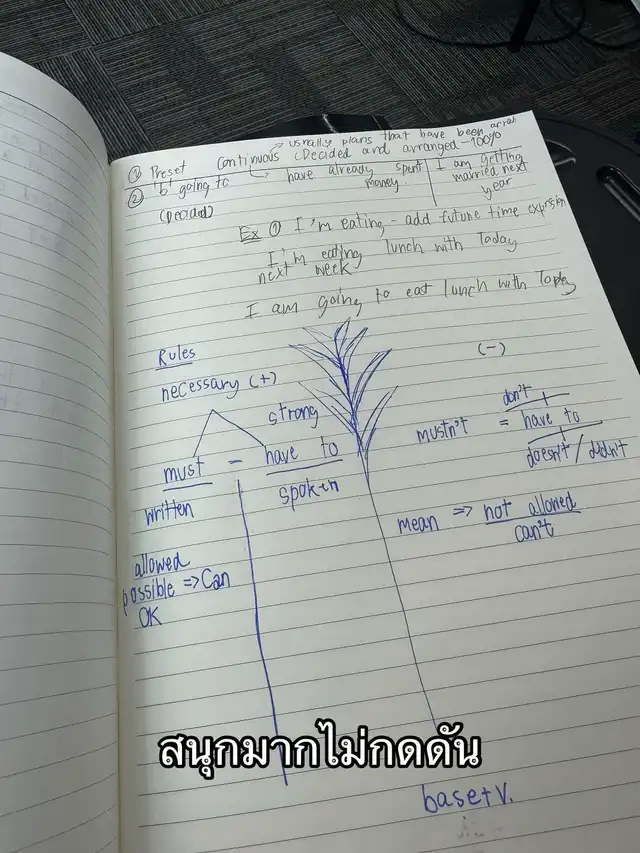 → usually plans that have been arrat
① Preset Continuous (Decided and arranged - 100%
② 'b' going to
(Decided)
↳ have already spent
money
I am getting
married next
year
Ex ① I'm eating - add future time exprsion
I'm eating lunch with Today
next week
I am going to eat lunch with Today
Rules
necessary (+)
strong
must = have to
written
spoken
allowed
possible => Can
OK
(-)
don't
mustn't = have to
doesn't / didn't
mean => not allowed
can't
สนุกมากไม่กดดัน
base + v.